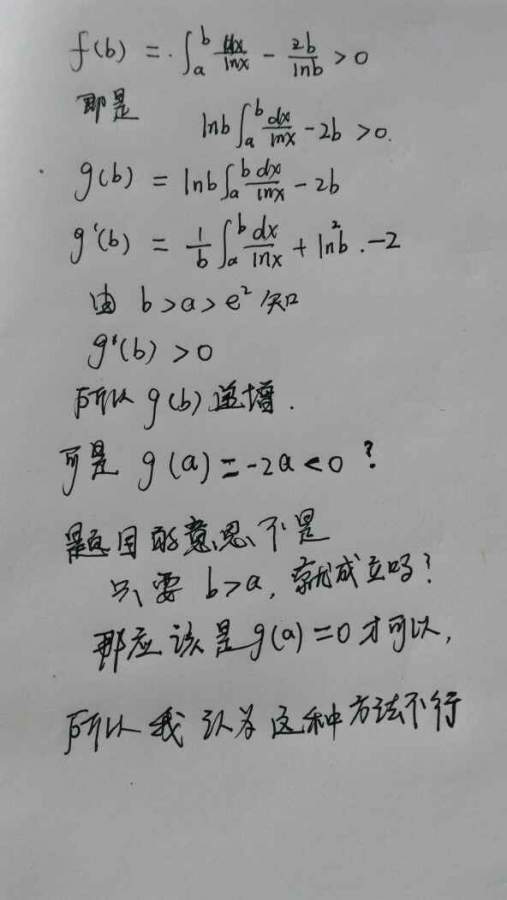 f(b) = ∫_a^b dx/lnx - 2b/lnb > 0
即是
lnb∫_a^b dx/lnx - 2b > 0.
g(b) = lnb∫_a^b dx/lnx - 2b
g'(b) = 1/b ∫_a^b dx/lnx + ln²b . -2
由 b>a>e² 知
g'(b) > 0
所以 g(b) 递增.
可是 g(a) = -2a < 0 ?
题目的意思不是
只要 b>a, 就成立吗?
那应该是g(a)=0才可以,
所以我认为这种方法不行